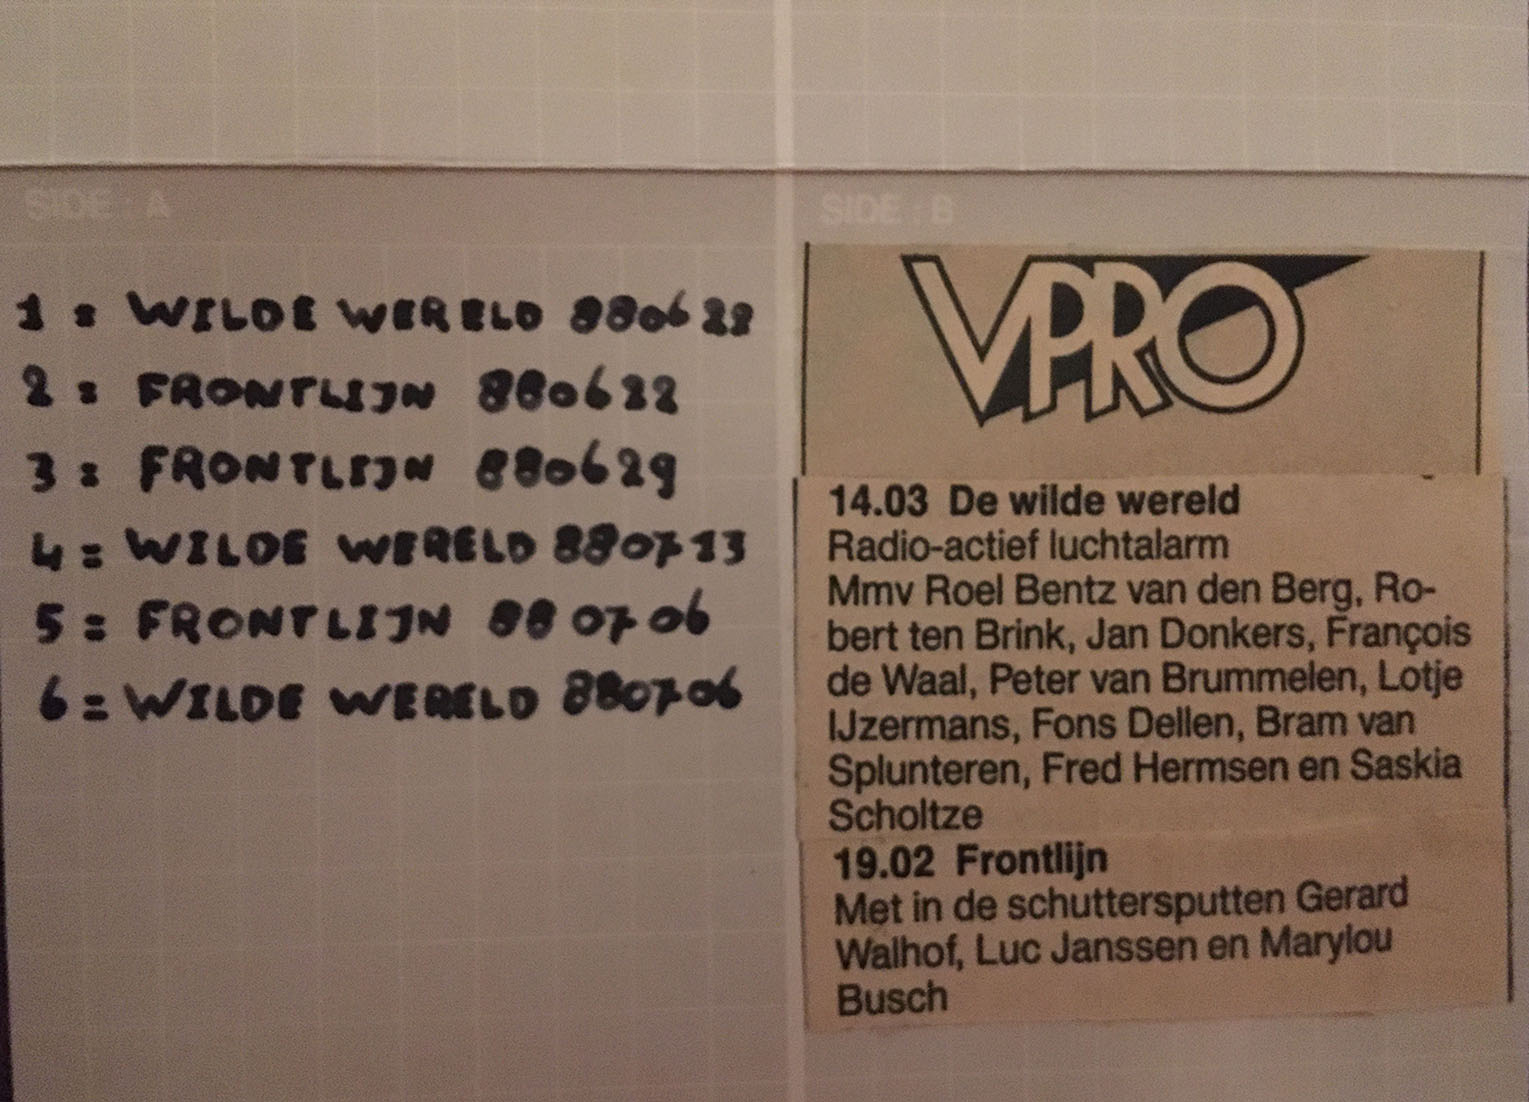 SIDE : A
1 = WILDE WERELD 880622
2 = FRONTLIJN 880622
3 = FRONTLIJN 880629
4 = WILDE WERELD 880713
5 = FRONTLIJN 880706
6 = WILDE WERELD 880706
SIDE : B
VPRO
14.03 De wilde wereld
Radio-actief luchtalarm
Mmv Roel Bentz van den Berg, Ro-
bert ten Brink, Jan Donkers, François
de Waal, Peter van Brummelen, Lotje
IJzermans, Fons Dellen, Bram van
Splunteren, Fred Hermsen en Saskia
Scholtze
19.02 Frontlijn
Met in de schuttersputten Gerard
Walhof, Luc Janssen en Marylou
Busch